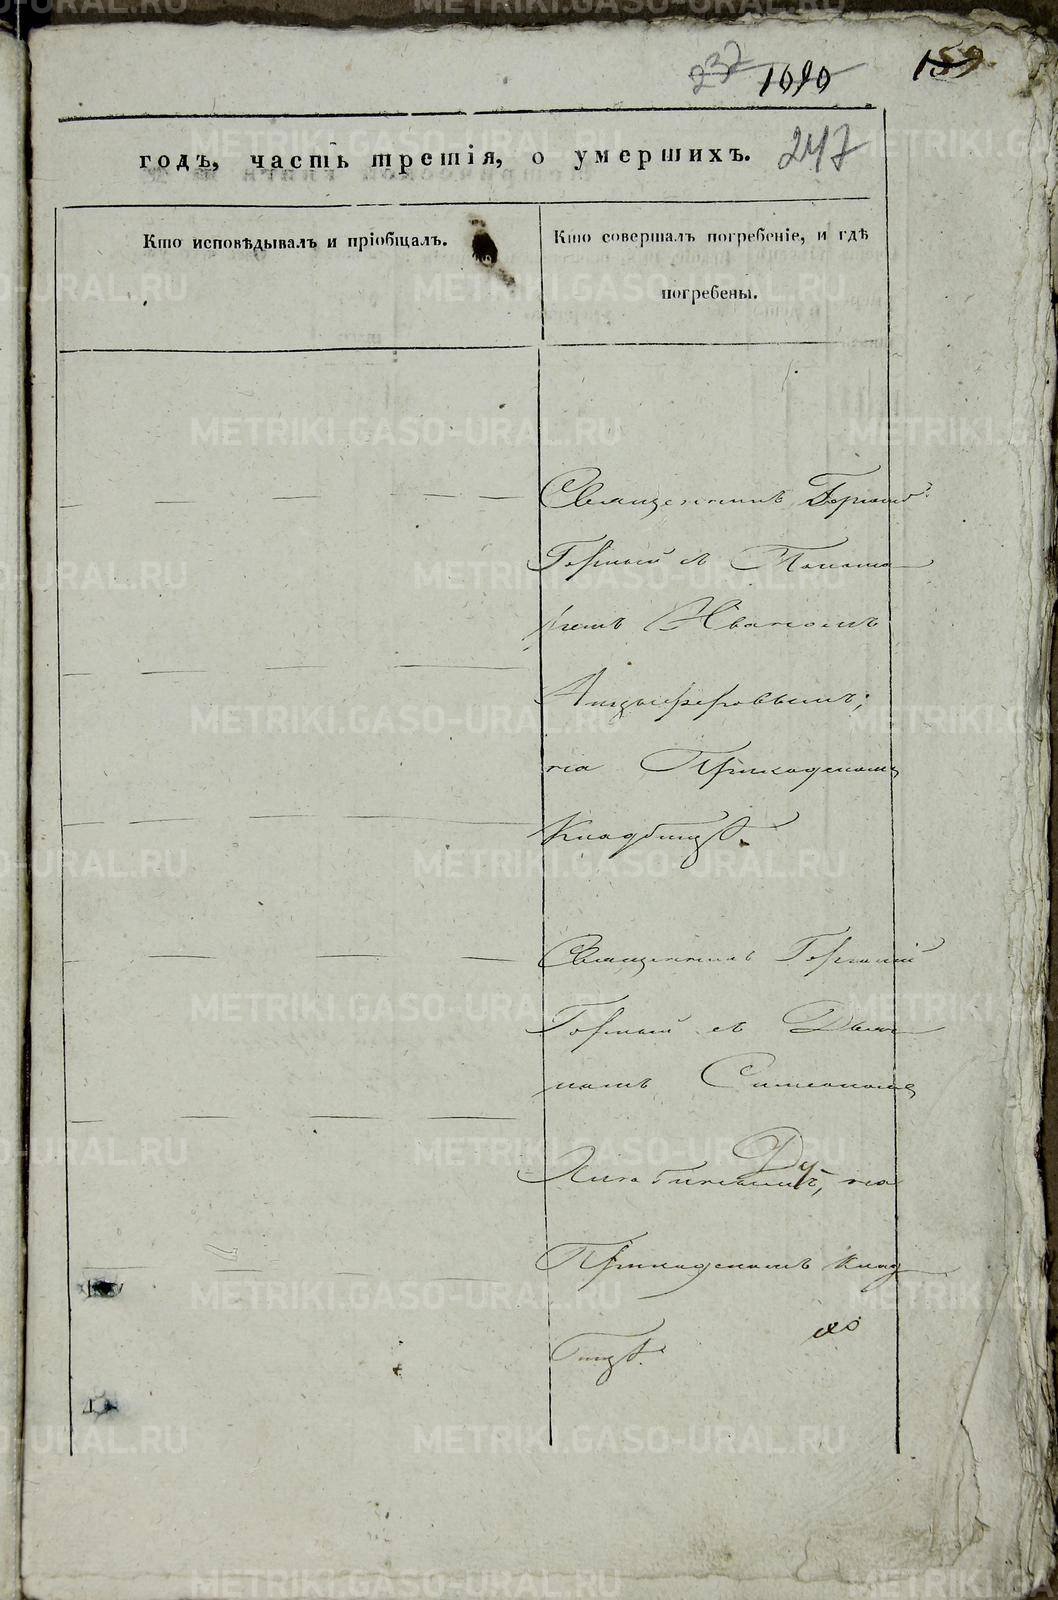 237 1090 159
годъ, часть третія, о умершихъ. 247
Кто исповѣдывалъ и пріобщалъ.
Кто совершалъ погребеніе, и гдѣ
погребены.
Священникъ
Горный съ Понома
ремъ Иваномъ
Анцыферовымъ;
на Приходскомъ
Кладбищѣ.
Священникъ Георгій
Горный съ Дьяч
комъ Симеономъ
на
Приходскомъ Клад
бищѣ.
METRIKI.GASO-URAL.RU